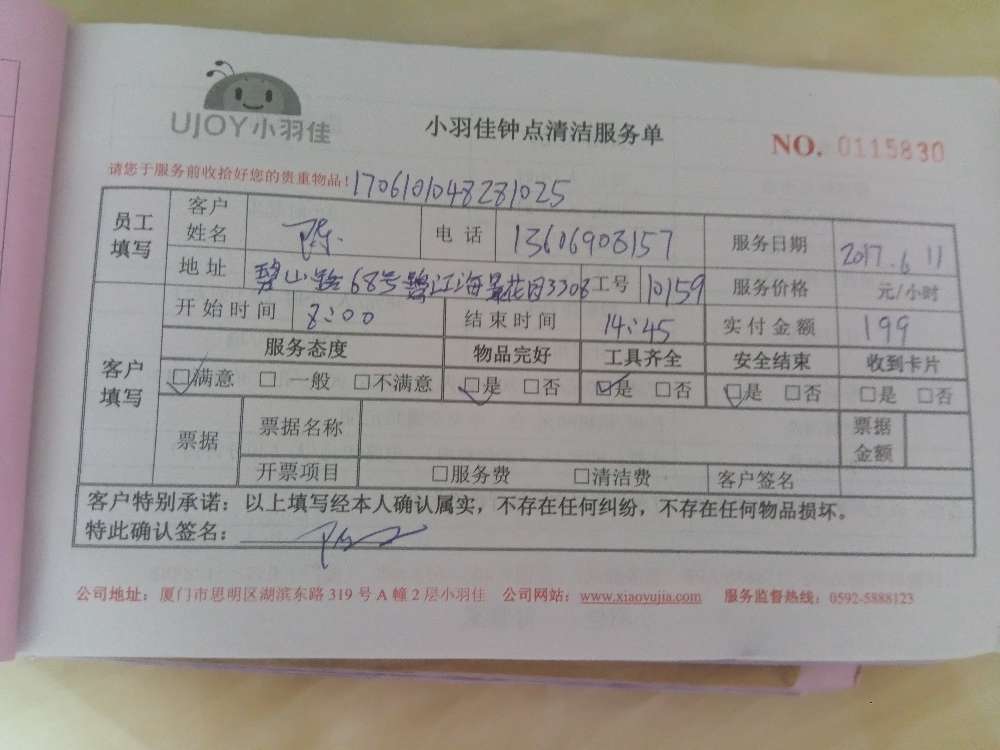 UJOY小羽佳
小羽佳钟点清洁服务单
NO. 0115830
请您于服务前收拾好您的贵重物品！170610104828 1025
员工填写 客户姓名 陈. 电话 13606908157 服务日期 2017.6.11
地址 碧山路68号鹭江海景花园3308 工号 10159 服务价格 元/小时
客户填写 开始时间 8:00 结束时间 14:45 实付金额 199
服务态度 物品完好 工具齐全 安全结束 收到卡片
☑满意 □一般 □不满意 ☑是 □否 ☑是 □否 ☑是 □否 □是 □否
票据 票据名称 票据金额
开票项目 □服务费 □清洁费 客户签名
客户特别承诺：以上填写经本人确认属实，不存在任何纠纷，不存在任何物品损坏。
特此确认签名：
公司地址：厦门市思明区湖滨东路319号A幢2层小羽佳 公司网站：www.xiaoyujia.com 服务监督热线：0592-5888123